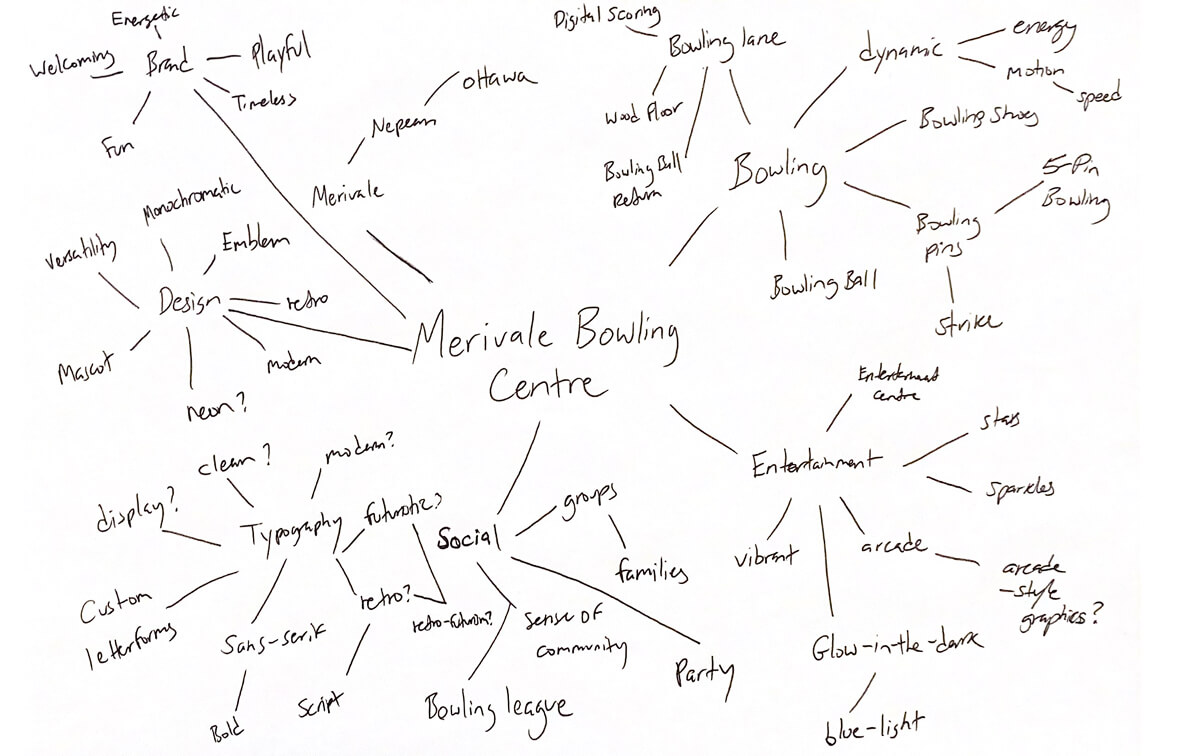 Energetic
Welcoming
Brand
Playful
Timeless
Fun
Ottawa
Nepean
Merivale
Digital Scoring
Bowling lane
Wood floor
Bowling Ball
Return
dynamic
energy
Motion
speed
Bowling Shoes
Bowling
5-Pin
Bowling
Bowling
pins
Strike
Bowling Ball
Monochromatic
Versatility
Emblem
Design
retro
Mascot
modern
neon?
Merivale Bowling
Centre
Entertainment
centre
Entertainment
stars
Sparkles
vibrant
arcade
arcade
-style
graphics?
Glow-in-the-dark
blue-light
clean?
modern?
display?
Typography
futuristic?
Custom
letterforms
Sans-serif
Bold
retro?
Script
retro-futurism?
Social
groups
families
Sense of
community
Bowling league
Party